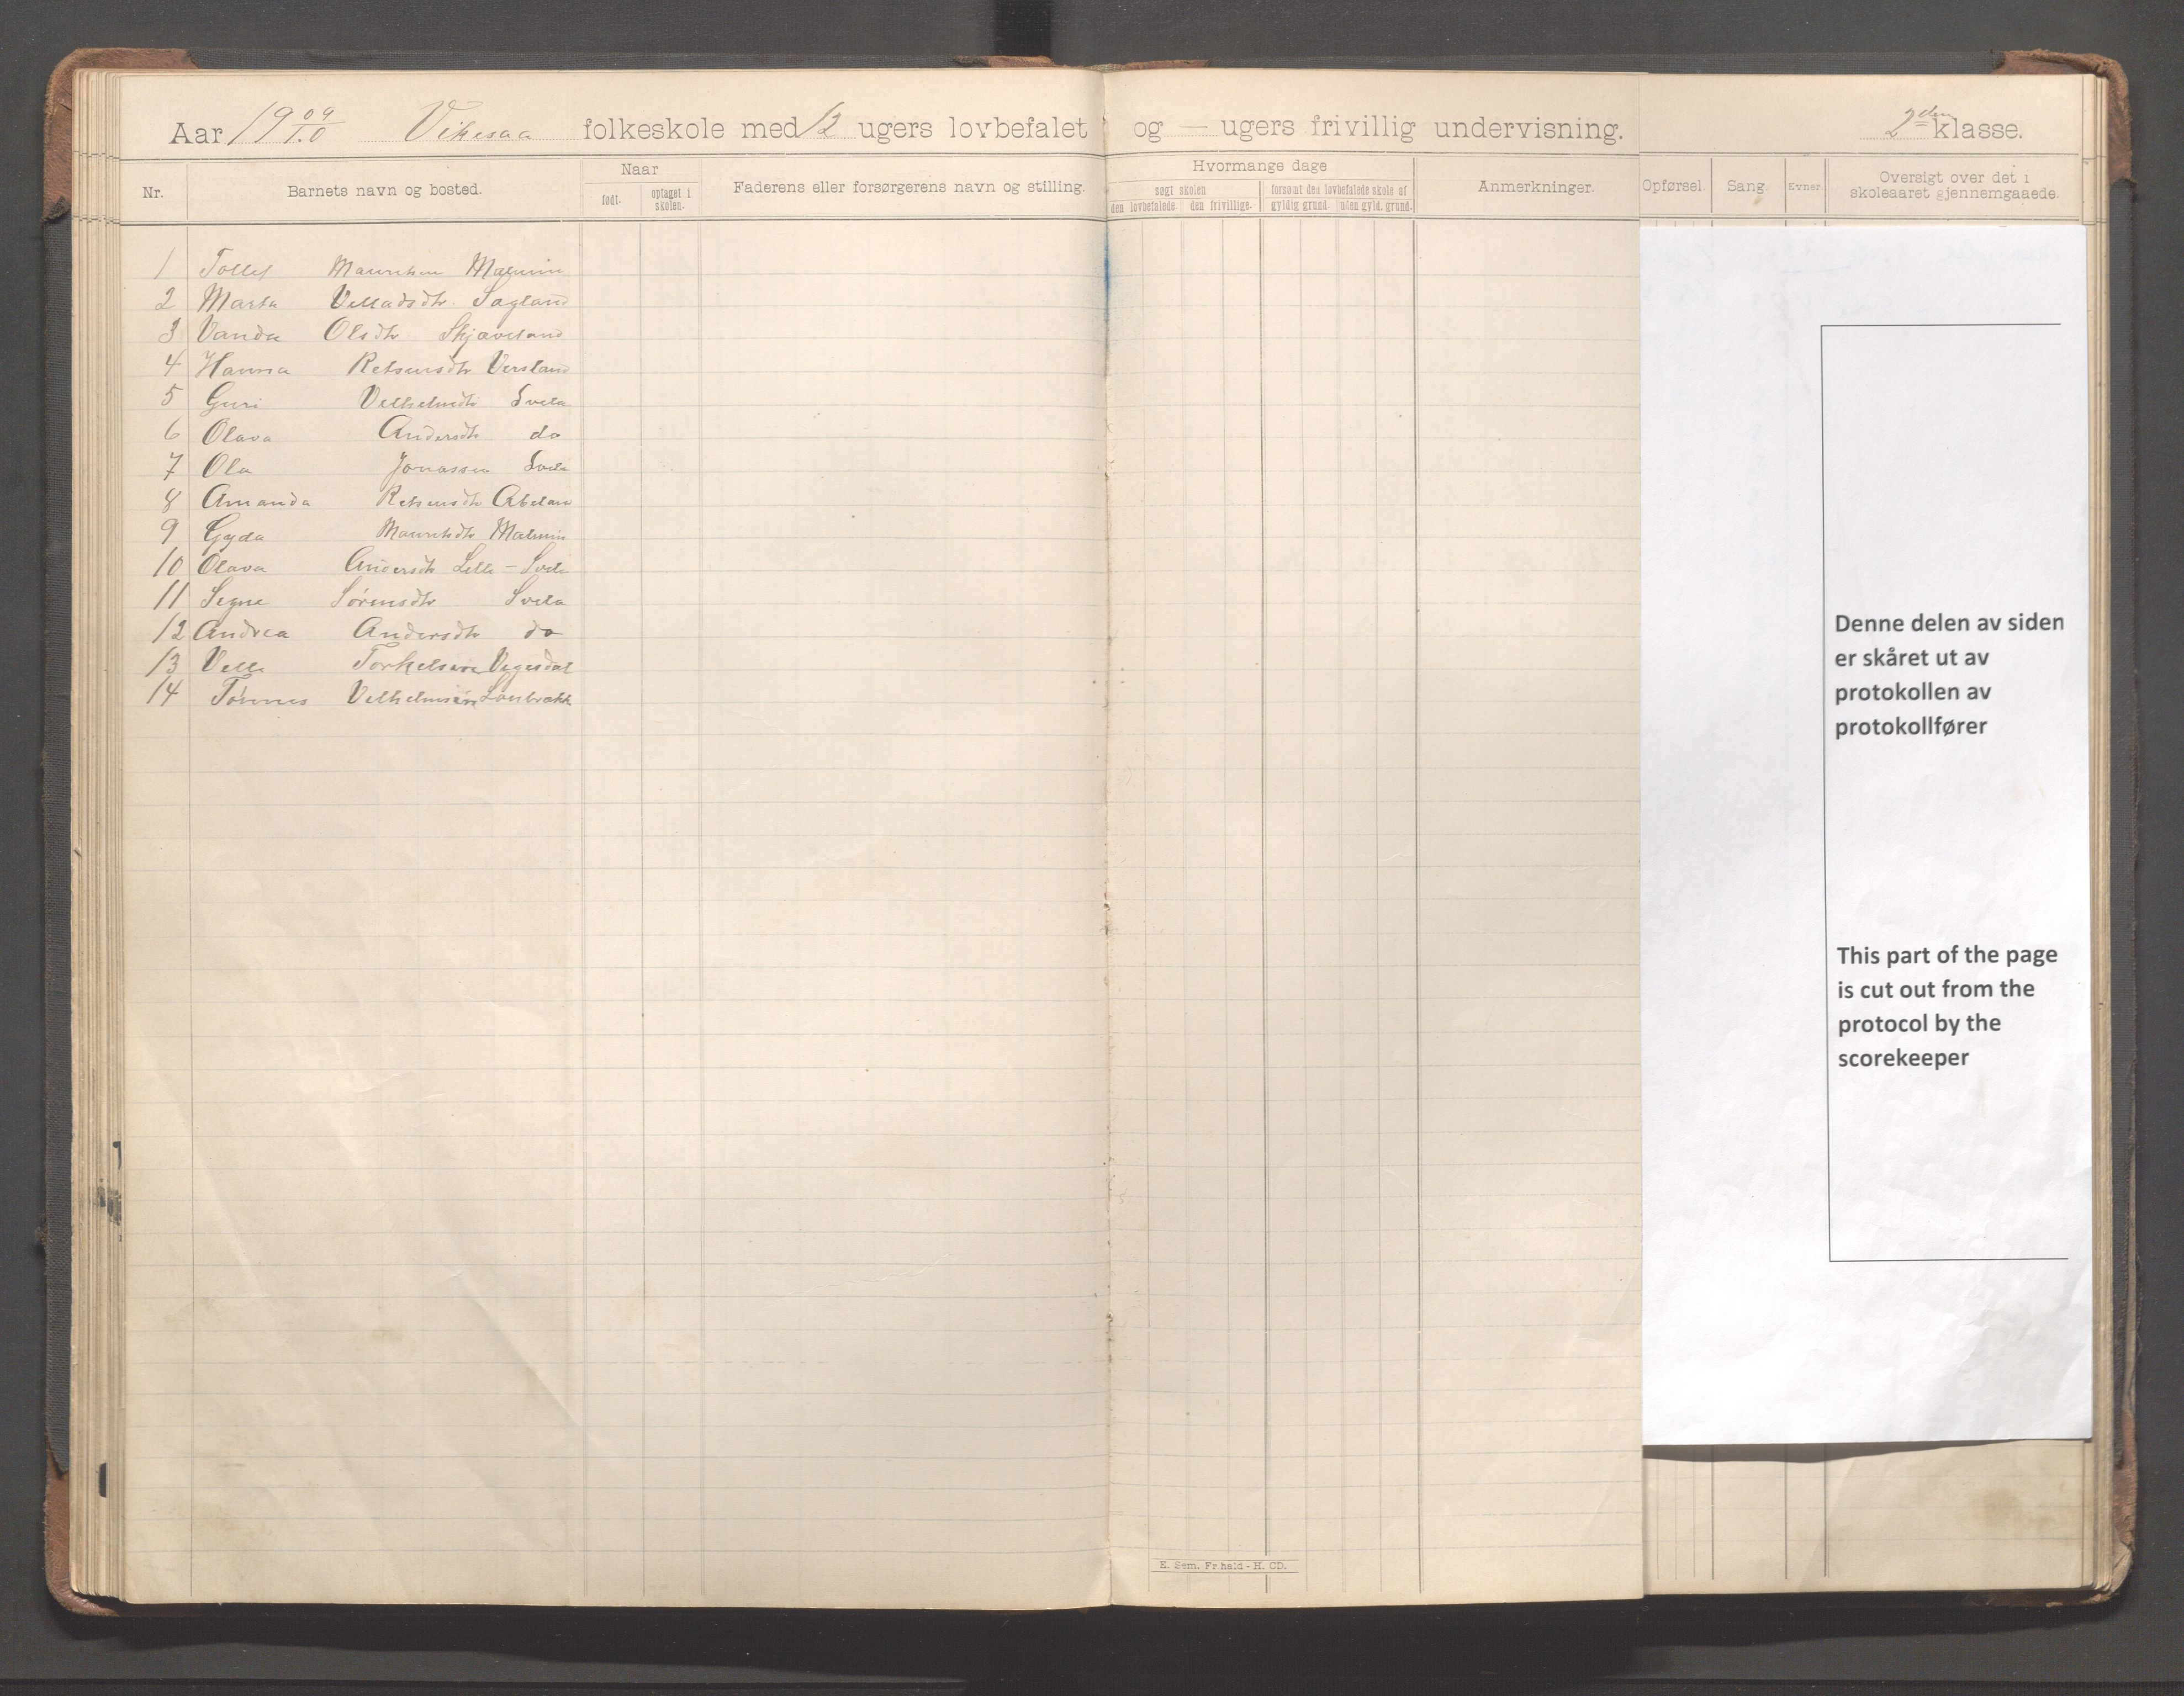 Aar 19 09/10 Vikesaa folkeskole med 12 ugers lovbefalet og — ugers frivillig undervisning. 2den klasse.
Nr. Barnets navn og bosted. Naar Faderens eller forsørgerens navn og stilling. Hvormange dage Anmerkninger. Opførsel. Sang. Evner. Oversigt over det i skoleaaret gjennemgaaede.
født. optaget i skolen. søgt skolen forsømt den lovbefalede skole af
den lovbefalede. den frivillige. gyldig grund. uden gyld. grund.
1 Tollef Mauritsen Malmin
2 Marta Velladsdtr. Sagland
3 Vanda Olsdtr. Skjæveland
4 Hanna Retsiusdtr Versland
5 Guri Velhelmdtr Svela
6 Olava Andersdtr do
7 Ola Jonassen Svela
8 Amanda Retsiusdtr
9 Gyda Mauritsdtr Malmin
10 Olava Andersdtr Lelle-Svela
11 Segne Sørensdtr Svela
12 Andrea Andersdtr do
13 Velle Torkelsen Vegesdal
14 Tønnes Velhelmsen
Denne delen av siden
er skåret ut av
protokollen av
protokollfører
This part of the page
is cut out from the
protocol by the
scorekeeper
E. Sem. Fr.hald - H. CD.